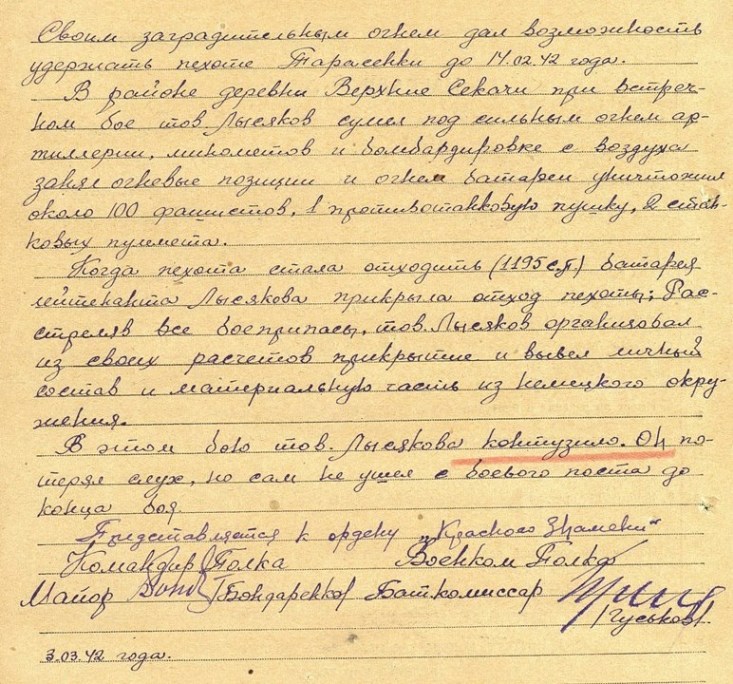 Своим заградительным огнем дал возможность
удержать пехоте Тарасенки до 14.02.42 года.
В районе деревни Верхние Секачи при встреч-
ном бое тов. Лысяков сумел под сильным огнем ар-
тиллерии, минометов и бомбардировке с воздуха
занял огневые позиции и огнем батареи уничтожил
около 100 фашистов, 1 противотанковую пушку, 2 стан-
ковых пулемета.
Когда пехота стала отходить (1195 с.п.) батарея
лейтенанта Лысякова прикрыла отход пехоты; Рас-
стреляв все боеприпасы, тов. Лысяков организовал
из своих расчетов прикрытие и вывел личный
состав и материальную часть из немецкого окру-
жения.
В этом бою тов. Лысякова контузило. Он по-
терял слух, но сам не ушел с боевого поста до
конца боя.
Представляется к ордену „Красного Знамени"
Командир Полка Военком Полка
Майор /Бондаренко/ Баткомиссар
/Гуськов/.
3.03.42 года.